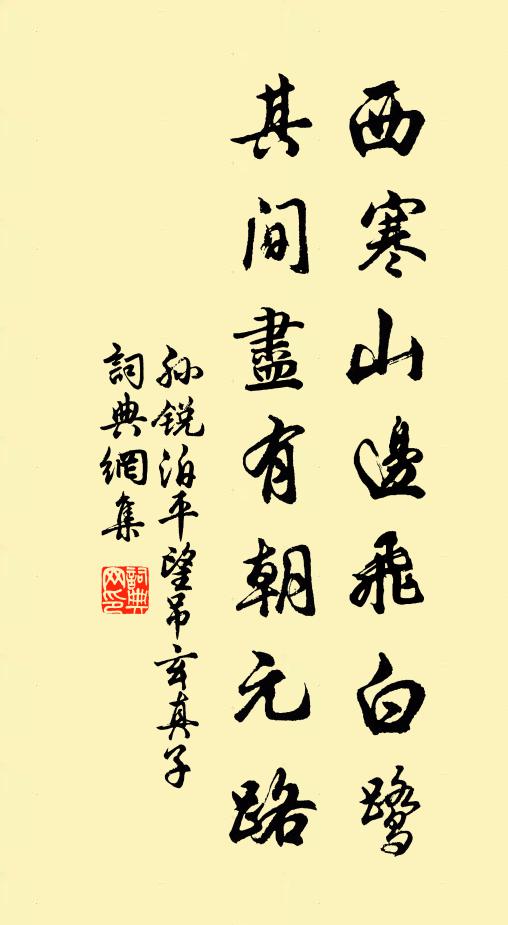 西寒山邊飛白鷺
其間盡有朝元路
孙锐泊平望吊玄真子
詞典網集
詞典网印